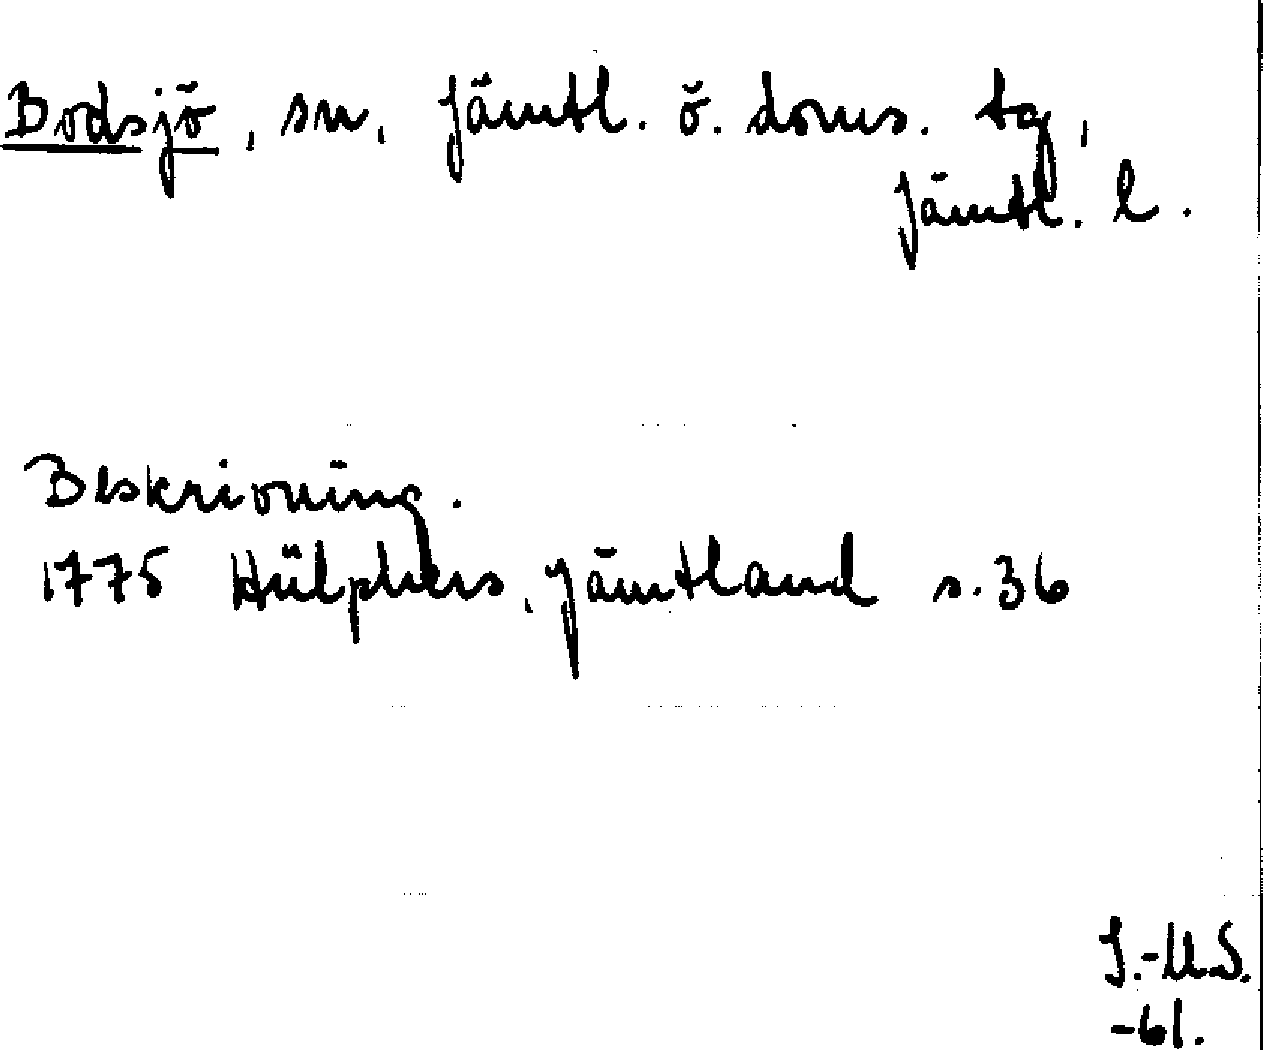 Bodsjö, sn, Jämtl. ö. doms. tg,
Jämtl. l.
Beskrivning.
1775 Hülphers, Jämtland s. 36
I.-M.S.
-61.